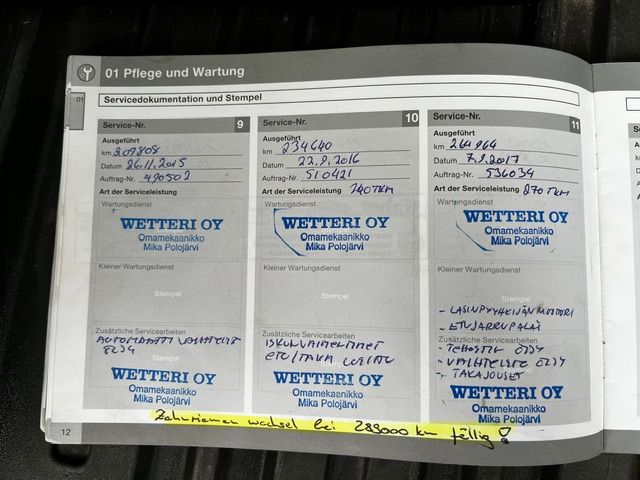 01 Pflege und Wartung
01
Servicedokumentation und Stempel
Service-Nr. 9
Ausgeführt
km 209808
Datum 26.11.2015
Auftrag-Nr. 490502
Art der Serviceleistung
Wartungsdienst
WETTERI OY
Omamekaanikko
Mika Polojärvi
Kleiner Wartungsdienst
Stempel
Zusätzliche Servicearbeiten
AUTOMAATTI VAIHTEISTO
ÖLJY
Stempel
WETTERI OY
Omamekaanikko
Mika Polojärvi
Service-Nr. 10
Ausgeführt
km 234640
Datum 22.9.2016
Auftrag-Nr. 510421
Art der Serviceleistung 240TKM
Wartungsdienst
WETTERI OY
Omamekaanikko
Mika Polojärvi
Kleiner Wartungsdienst
Stempel
Zusätzliche Servicearbeiten
ISKUNVAIMENTIMET
ETU/TAKA
WETTERI OY
Omamekaanikko
Mika Polojärvi
Service-Nr. 11
Ausgeführt
km 261964
Datum 7.9.2017
Auftrag-Nr. 536034
Art der Serviceleistung 270 TKM
Wartungsdienst
WETTERI OY
Omamekaanikko
Mika Polojärvi
Kleiner Wartungsdienst
Stempel
- LASINPYYHKIJÄN MOOTTORI
- ETUJARRUPALAT
Zusätzliche Servicearbeiten
- TEHOSTIN ÖLJY
- VAIHTEISTO ÖLJY
- TAKAJOUSET
WETTERI OY
Omamekaanikko
Mika Polojärvi
12
Zahnriemen wechsel bei 288000 km fällig!